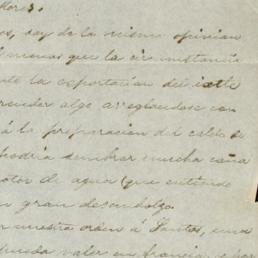 dores.
os, soy de la misma opinion
l menos que la circunstancia
de la esportacion del ixtle
render algo arreglandose con
á la preparacion del caldo de
podria sembrar mucha caña
otor de agua (que entiendo
n gran desembolzo.
r nuestra orden á Santos, una
valer un